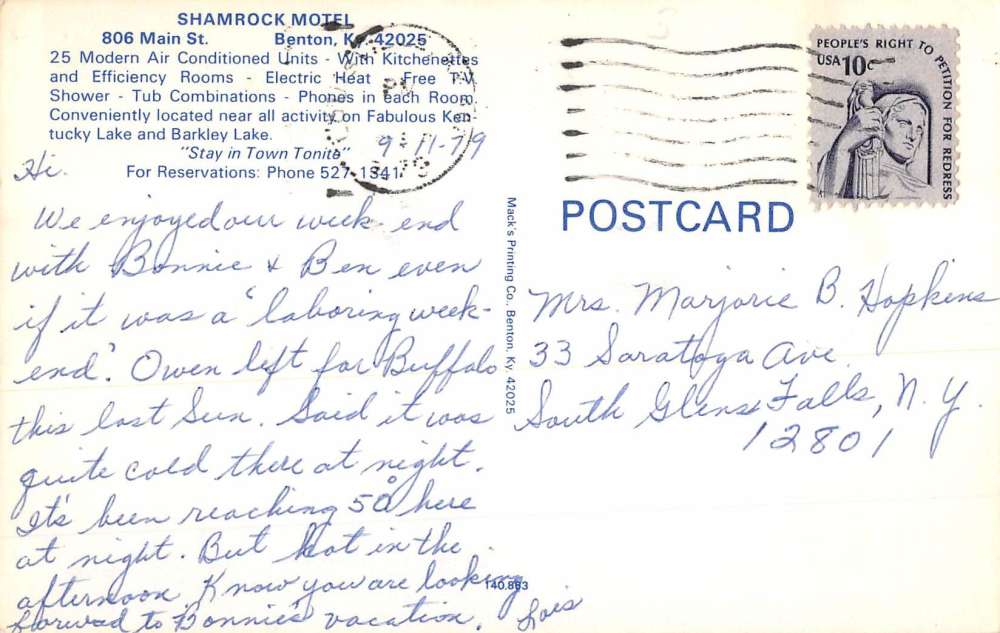 SHAMROCK MOTEL
806 Main St. Benton, Ky. 42025
25 Modern Air Conditioned Units - With Kitchenettes
and Efficiency Rooms - Electric Heat - Free T.V.
Shower - Tub Combinations - Phones in each Room.
Conveniently located near all activity on Fabulous Ken-
tucky Lake and Barkley Lake.
"Stay in Town Tonite"
For Reservations: Phone 527-1341
9-11-79
Hi.
We enjoyed our week-end
with Bonnie & Ben even
if it was a 'laboring week-
end'. Owen left for Buffalo
this last Sun. Said it was
quite cold there at night.
It's been reaching 50° here
at night. But hot in the
afternoon. Know you are looking
forward to Bonnie's vacation.
Lois
140,863
Mack's Printing Co., Benton, Ky. 42025
PEOPLE'S RIGHT TO PETITION FOR REDRESS
USA 10c
POSTCARD
Mrs. Marjorie B. Hopkins
33 Saratoga Ave
South Glens Falls, N.Y.
12801